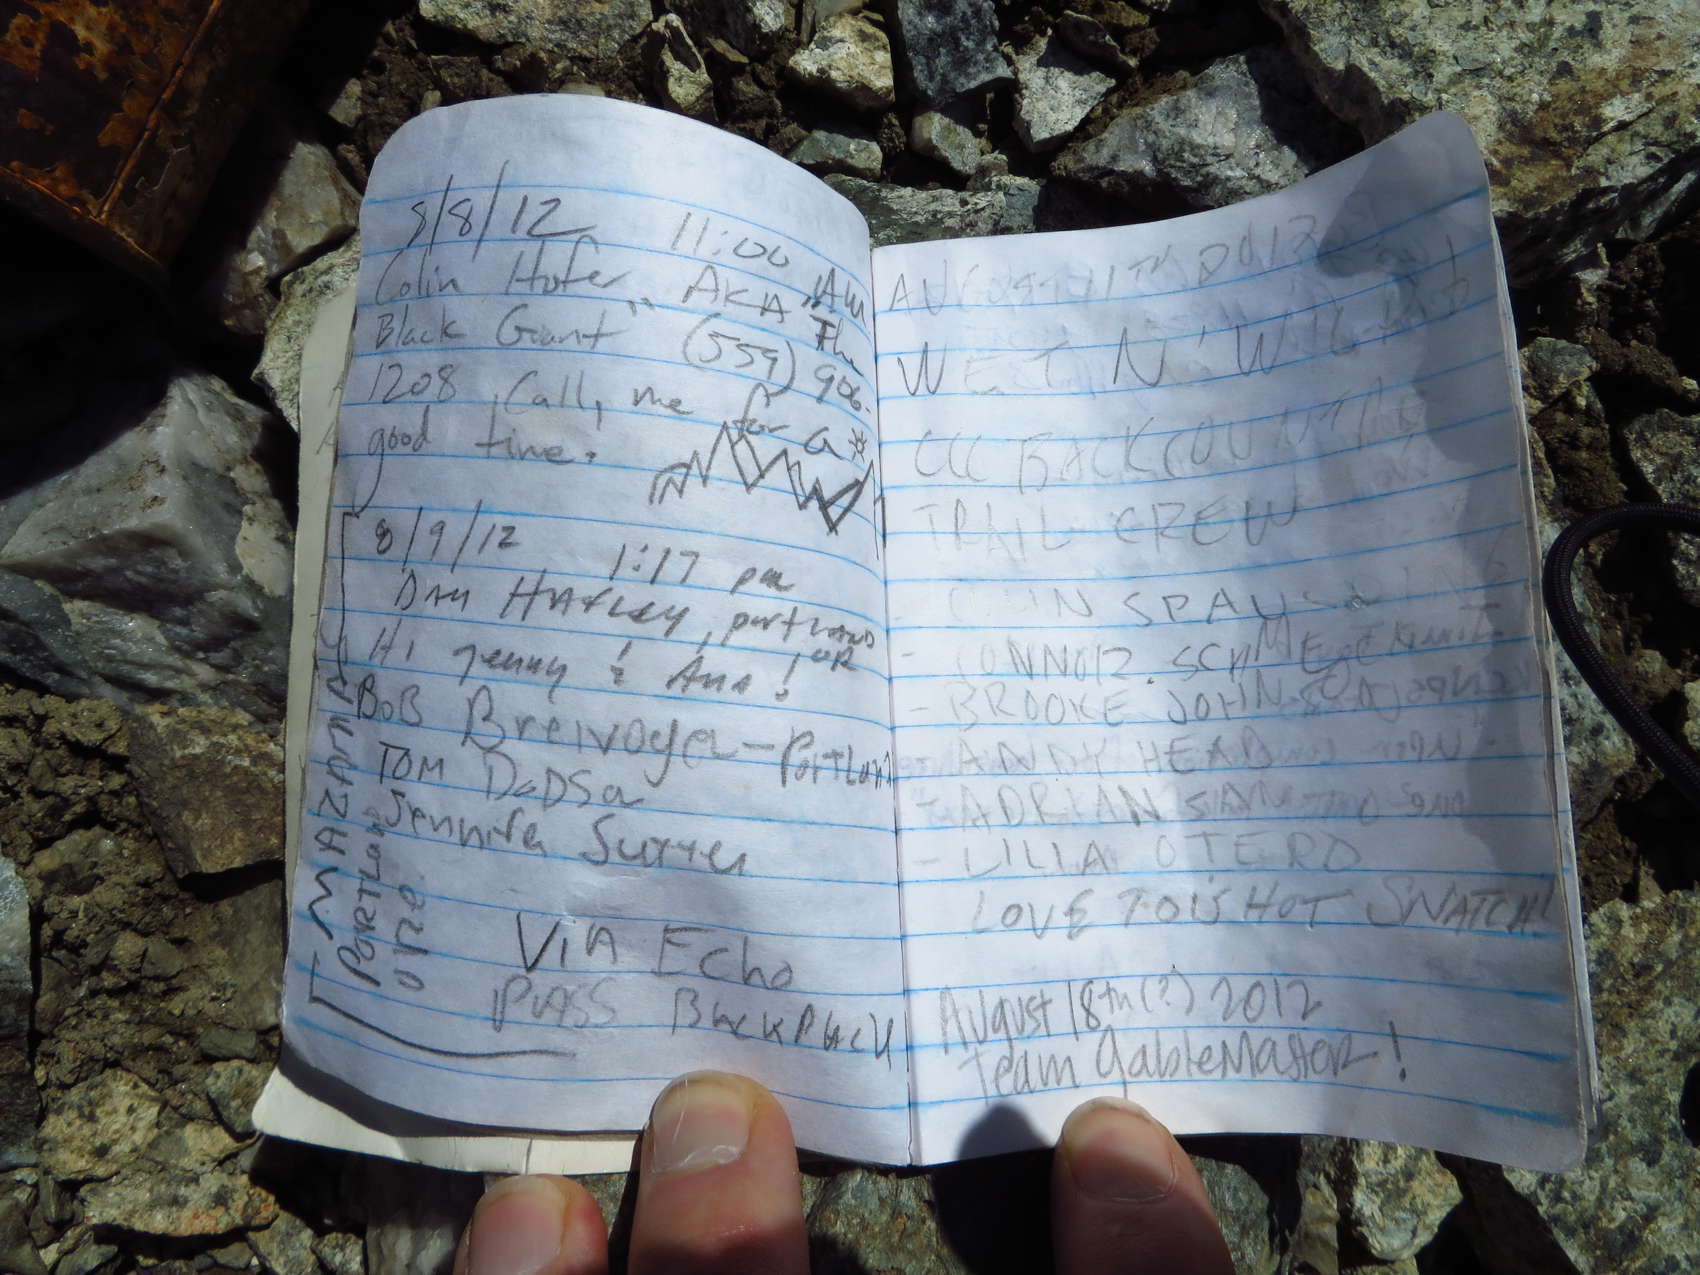 8/8/12 11:00 AM
Colin Hofer AKA "The
Black Giant" (559) 906-
1208 Call, me for a
good time.
8/9/12 1:17 pm
DAN HAFLEY, portLAND
OR
Hi Jenny & Ann!
BoB Breivogel - PortLand
TOM DoDson
Jennifer
MAZAMAS
PORTLAND
ORE.
VIA Echo
PASS BackPACK
AUGUST 11TH 2012
WET N' WILD
CCC BACKCOUNTRY
TRAIL CREW
- COLIN SPAUSDING
- CONNOR
- BROOKE JOHNSON
- ANDY HEAD
- ADRIAN SAN
- LILIA OTERO
LOVE HOT SNATCH!
August 18th(?) 2012
Team GableMaster!